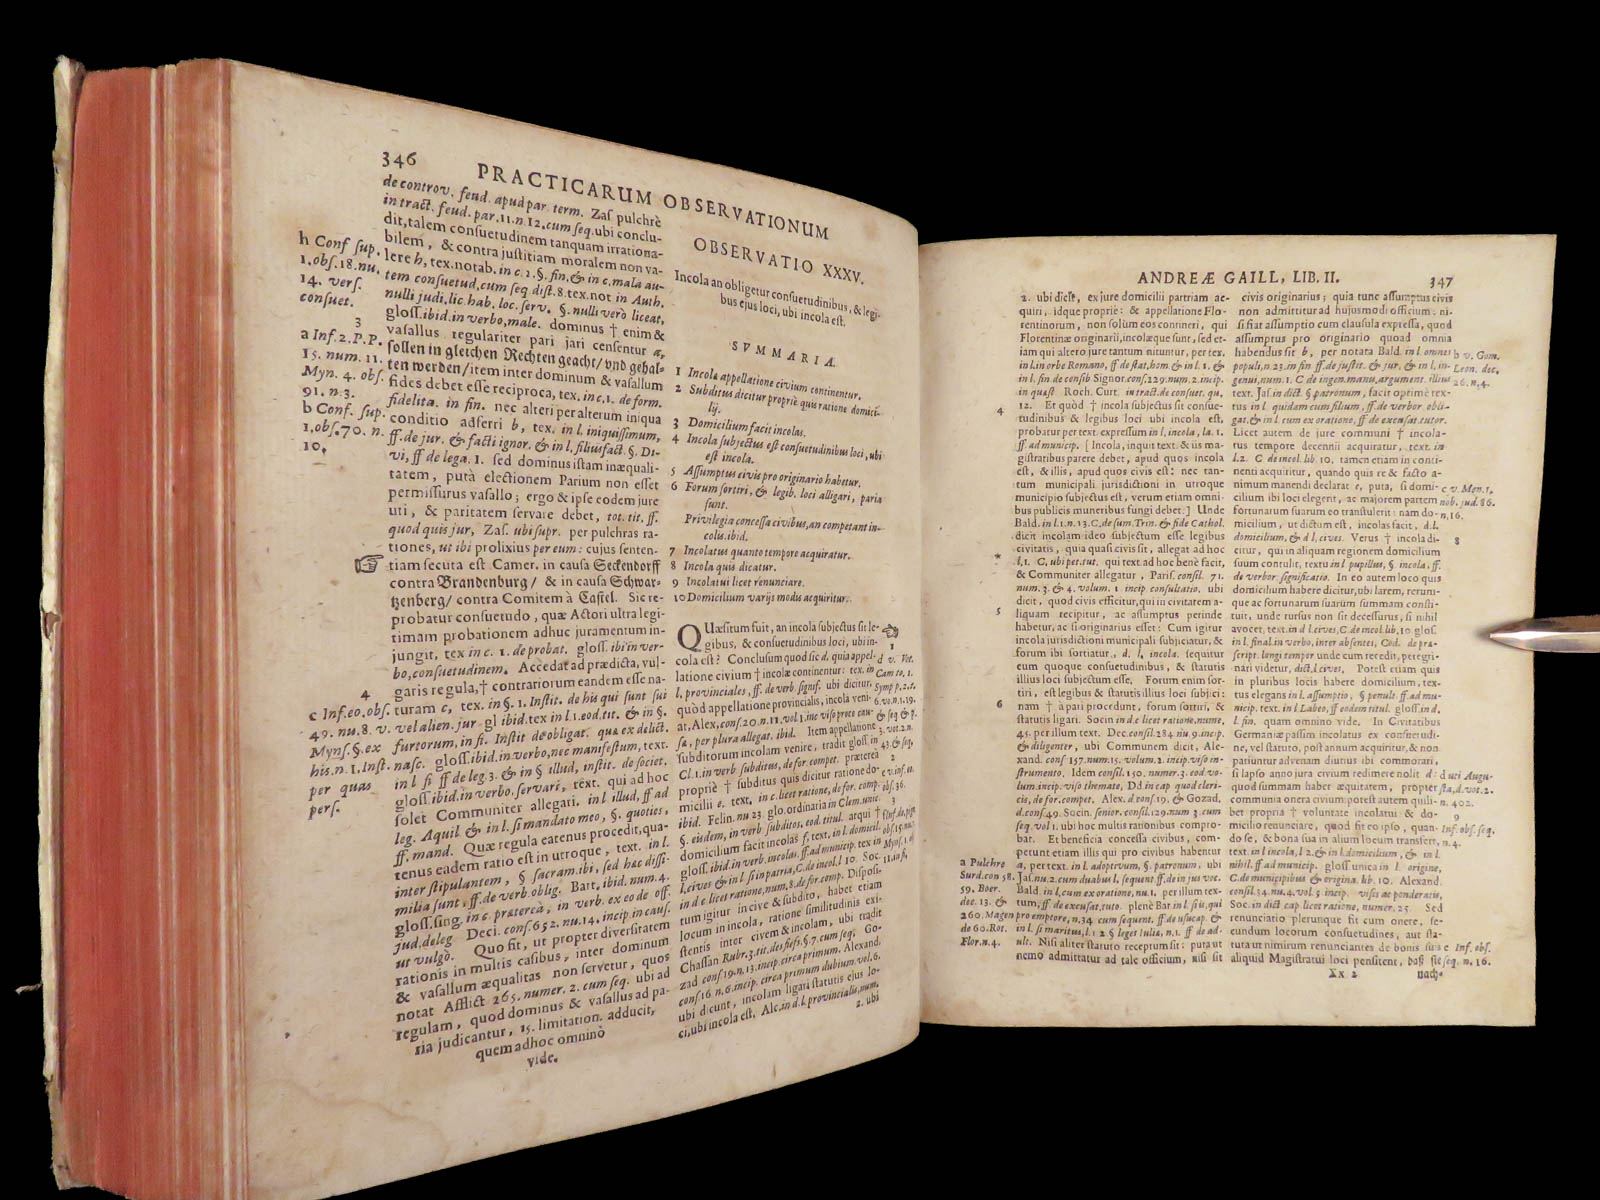 346
PRACTICARUM OBSERVATIONUM
de controv. feud. apud par. term. Zaſ pulchrè
in tract. feud. par. 11. n. 12. cum ſeq. ubi conclu-
dit, talem conſuetudinem tanquam irrationa-
bilem, & contra juſtitiam moralem non va-
lere h, tex. notab. in c. 2. §. fin. & in c. mala au-
tem conſuetud, cum ſeq diſt. 8. tex. not in Auth.
nulli judi. lic. hab. loc. ſerv. §. nulli verò liceat,
gloſſ. ibid. in verbo, male. dominus † enim &
vaſallus regulariter pari jari cenſentur a,
ſollen in gleichen Rechten geacht/ vnd gehal-
ten werden/ item inter dominum & vaſallum
fides debet eſſe reciproca, tex. in c. 1. de form.
fidelita. in fin. nec alteri per alterum iniqua
conditio adferri b, tex. in l. iniquiſſimum,
ff. de jur. & facti ignor. & in l. filiusfact. §. Di-
vi, ff de lega. 1. ſed dominus iſtam inæquali-
tatem, putà electionem Parium non eſſet
permiſſurus vaſallo; ergo & ipſe eodem jure
uti, & paritatem ſervare debet, tot. tit. ff.
quod quis jur, Zaſ. ubi ſupr. per pulchras ra-
tiones, ut ibi prolixius per eum: cujus ſenten-
tiam ſecuta eſt Camer. in cauſa Seckendorff
contra Brandenburg/ & in cauſa Schwar-
tzenberg/ contra Comitem à Caſtel. Sic re-
probatur conſuetudo, quæ Actori ultra legi-
timam probationem adhuc juramentum in-
jungit, tex in c. 1. de probat. gloſſ. ibi in ver-
bo, conſuetudinem. Accedat ad prædicta, vul-
garis regula, † contrariorum eandem eſſe na-
turam c, tex. in §. 1. Inſtit. de his qui ſunt ſui
v. vel alien. jur gl ibid. tex in l. 1. eod. tit. & in §.
furtorum, in fi. Inſtit de obligat. quæ ex delict.
naſc. gloſſ. ibid. in verbo, nec manifeſtum, text.
in l ſi ff de leg. 3. & in § illud, inſtit. de ſociet.
gloſſ. ibid. in verbo, ſervari, text. qui ad hoc
ſolet Communiter allegari. in l illud, ff ad
leg. Aquil & in l. ſi mandato meo, §. quoties,
ff. mand. Quæ regula eatenus procedit, qua-
tenus eadem ratio eſt in utroque, text. in l.
inter ſtipulantem, § ſacram. ibi, ſed hæc diſſi-
milia ſunt, ff. de verb. oblig. Batt, ibid. num. 4.
gloſſ. ſing. in c. præterea, in verb. ex eo de off.
jud. deleg Deci. conſ. 652. nu. 14. incip. in cauſ.
ut vulgò. Quo fit, ut propter diverſitatem
rationis in multis caſibus, inter dominum
& vaſallum æqualitas non ſervetur, quos
notat Afflict 265. numer. 2. cum ſeq. ubi ad
regulam, quod dominus & vaſallus ad pa-
ria judicantur, 15. limitation. adducit,
quem adhoc omninò
vide.
h Conf ſup.
1. obſ. 18. nu.
14. verſ.
conſuet.
3
a Inf. 2. P. P.
15. num. 11.
Myn. 4. obſ.
91. n. 3.
b Conf. ſup.
1. obſ. 70. n.
10.
4
c Inf. eo. obſ.
49. nu. 8.
Mynſ. §. ex
his. n. 1. Inſt.
per quas
perſ.
OBSERVATIO XXXV.
Incola an obligetur conſuetudinibus, & legi-
bus ejus loci, ubi incola eſt.
SVMMARIA.
1 Incola appellatione civium continentur.
2 Subditus dicitur propriè quis ratione domici-
lij.
3 Domicilium facit incolas.
4 Incola ſubjectus eſt conſuetudinibus loci, ubi
eſt incola.
5 Aſſumptus civis pro originario habetur.
6 Forum ſortiri, & legib. loci alligari, paria
ſunt.
Privilegia conceſſa civibus, an competant in-
colis. ibid.
7 Incolatus quanto tempore acquiratur.
8 Incola quis dicatur.
9 Incolatui licet renunciare.
10 Domicilium varijs modis acquiritur.
QUæſitum fuit, an incola ſubjectus ſit le-
gibus, & conſuetudinibus loci, ubi in-
cola eſt? Concluſum quod ſic d, quia appel-
latione civium † incolæ continentur: tex. in
l. provinciales, ff. de verb ſignif. ubi dicitur,
quòd appellatione provincialis, incola veni-
at, Alex, conſ. 20. n. 11. vol 1. inc viſo proce cau-
ſa, per plura allegat. ibid. Item appellatione
ſubditorum incolam venire, tradit gloſſ in
Cl. 1. in verb ſubditus, de for. compet. præterea
propriè † ſubditus quis dicitur ratione do-
micilii e, text, in c. licet ratione, de for. comp.
ibid. Felin. nu 23. glo. ordinaria in Clem. unic.
§. eiſdem, in verb ſubditos, eod. titul. atqui †
domicilium facit incolas f, text, in l. domicil.
gloſſ. ibid in verb. incolas. ff. ad municip. tex in
l. cives & in l ſi in patria, C. de incol. l 10. Soc.
in d c licet ratione, num. 8. de for. comp. Diſpoſi-
tum igitur in cive & ſubdito, habet etiam
locum in incola, ratione ſimilitudinis exi-
ſtentis inter civem & incolam, ubi tradit
Chaſſan Rubr. 3. tit. des fiefs §. 7. cum ſeq. Go-
zad conſ. 19. n. 13. incip. circa primum. Alexand.
conſ 16 n. 6. incip. circa primum dubium vol. 6.
ubi dicunt, incolam ligari ſtatutis ejus lo-
ci, ubi incola eſt, Alc. in d. l. provincialis, num.
2. ubi
1
d v. Vot.
Cam to. 1.
Symp p. 2. t.
6. vo. n. 1. 19.
& ſeq & p.
3. vot. 2. n.
43. & ſeq.
2
e v. inf. 11.
obſ. 36.
3
ANDREÆ GAILL, LIB. II.
347
2. ubi dicit, ex jure domicilii partriam ac-
quiri, idque propriè: & appellatione Flo-
rentinorum, non ſolum eos contineri, qui
Florentinæ originarii, incolæque ſunt, ſed et-
iam qui altero jure tantum nituntur, per tex.
in l. in orbe Romano, ff de ſtat, hom & in l. 1. &
in l. fin de conſib Signor. conſ. 229. num. 2. incip.
in quæſt Roch. Curt. in tract. de conſuet. qu,
12. Et quòd † incola ſubjectus ſit conſue-
tudinibus & legibus loci ubi incola eſt,
probatur per text. expreſſum in l, incola, la. 1.
ff. ad municip. [ Incola, inquit text. & iis ma-
giſtratibus parere debet, apud quos incola
eſt, & illis, apud quos civis eſt: nec tan-
tum municipali jurisdictioni in utroque
municipio ſubjectus eſt, verum etiam omni-
bus publicis muneribus fungi debet.] Unde
Bald. in l. 1. n. 13. C. de ſum. Trin. & fide Cathol.
dicit incolam ideo ſubjectum eſſe legibus
civitatis, quia quaſi civis ſit, allegat ad hoc
l. 1. C, ubi pet. tut. qui text ad hoc benè facit,
& Communiter allegatur, Pariſ. conſil. 71.
num. 3. & 4. volum. 1 incip conſultatio. ubi
dicit, quod civis efficitur, qui in civitatem a-
liquam recipitur, ac aſſumptus perinde
habetur, ac ſi originarius eſſet: Cum igitur
incola jurisdictioni municipali ſubjiciatur, &
forum ibi ſortiatur, d. l. incola. ſequitur
eum quoque conſuetudinibus, & ſtatutis
illius loci ſubjectum eſſe. Forum enim ſor-
tiri, eſt legibus & ſtatutis illius loci ſubjici:
nam † à pari procedunt, forum ſortiri, &
ſtatutis ligari. Socin in d. c licet ratione, nume,
45. per illum text. Dec. conſil. 284 nu 9. incip.
& diligenter, ubi Communem dicit, Ale-
xand. conſ 157. num. 15. volum. 2. incip. viſo in-
ſtrumento. Idem conſil. 150. numer. 3. eod. vo-
lum. incip. viſo themate, Dd in cap quod cleri-
cis, de for. compet. Alex. d conſ. 19. & Gozad,
d. conſ. 49. Socin. ſenior. conſil. 129. num 3. cum
ſeq. vol 1. ubi hoc multis rationibus compro-
bat. Et beneficia conceſſa civibus, com-
petunt etiam illis qui pro civibus habentur
a, per text. in l. adoptivum, §. patronum, ubi
Jaſ. nu. 2. cum duabus l. ſequent ff. de in jus voc.
Bald. in l, cum ex oratione, nu. 1. per illum tex-
tum, ff. de excuſat, tuto. plenè Bar. in l. ſi is, qui
pro emptore, n. 34. cum ſequent, ff de uſucap. &
in l. ſi maritus, l. 1 2 § lege Iulia, n. 1. ff de ad-
ult. Niſi aliter ſtatuto receptum ſit: puta ut
nemo admittatur ad tale officium, niſi ſit
4
*
5
6
a Pulchre
Surd. con 58.
59. Boer.
dec. 13. &
260. Magen
de 60. Rot.
Flor. n. 4.
civis originarius; quia tunc aſſumptus civis
non admittitur ad hujusmodi officium: ni-
ſi fiat aſſumptio cum clauſula expreſſa, quod
aſſumptus pro originario quoad omnia
habendus ſit b, per notata Bald. in l. omnes
populi, n. 23. in fin ff. de juſtit. & jur, & in l, in-
genui, num. 1. C de ingen. manu, argument. illius
text. Jaſ. in dict. § patronum, facit optimè tex-
tus in l. quidam cum filium, ff. de verbor obli-
gat. & in l. cum ex oratione, ff de excuſat. tutor.
Licet autem de jure communi † incola-
tus tempore decennii acquiratur, text. in
l. 2. C de incol. lib. 10. tamen etiam in conti-
nenti acquiritur, quando quis re & facto a-
nimum manendi declarat c, puta, ſi domi-
cilium ibi loci elegerit, ac majorem partem
fortunarum ſuarum eo tranſtulerit: nam do-
micilium, ut dictum eſt, incolas facit, d. l.
domicilium, & d l, cives. Verus † incola di-
citur, qui in aliquam regionem domicilium
ſuum contulit, textu in l pupillus, §. incola, ff.
de verbor ſignificatio. In eo autem loco quis
domicilium habere dicitur, ubi larem, rerum-
que ac fortunarum ſuarum ſummam conſti-
tuit, unde rurſus non ſit deceſſurus, ſi nihil
avocet, text. in d l. cives, C. de incol. lib. 10. gloſ.
in l. final. in verbo, inter abſentes, Cod. de præ-
ſcript. longi tempor unde cum recedit, peregri-
nari videtur, dict. l. cives. Poteſt etiam quis
in pluribus locis habere domicilium, tex-
tus elegans in l. aſſumptio, § penult. ff. ad mu-
nicip. text. in l. Labeo, ff. eodem titul. gloſſ. in d.
l. fin, quam omnino vide. In Civitatibus
Germaniæ paſſim incolatus ex conſuetudi-
ne, vel ſtatuto, poſt annum acquiritur, & non
patiuntur advenam diutius ibi commorari,
ſi lapſo anno jura civium redimere nolit d:
quod ſummam habet æquitatem, propter
communia onera civium; poteſt autem quili-
bet propria † voluntate incolatui & do-
micilio renunciare, quod fit eo ipſo, quan-
do ſe, & bona ſua in alium locum transfert,
text. in l incola, l 2. & in l. domicilium, & in l.
nihil. ff ad municip. gloſſ. unica in l origine,
C. de municipibus & origina. lib. 10. Alexand.
conſil. 34. nu. 4. vol. 5 incip. viſis ac ponderatis,
Soc. in dict cap licet ratione, numer. 25. Sed
renunciatio plerunque fit cum onere, ſe-
cundum locorum conſuetudines, aut ſta-
tuta ut nimirum renunciantes de bonis ſuis e
aliquid Magiſtratui loci penſitent, daß ſie
Xx 2
nach-
b v. Gom.
Leon. dec.
26. n. 4.
c v. Men. 1.
nob. jud. 86.
n. 16.
8
d uti Augu-
ſta, d. vot. 2.
n. 402.
9
Inf. obſ. ſeq.
n. 4.
e Inf. obſ.
ſeq. n. 16.